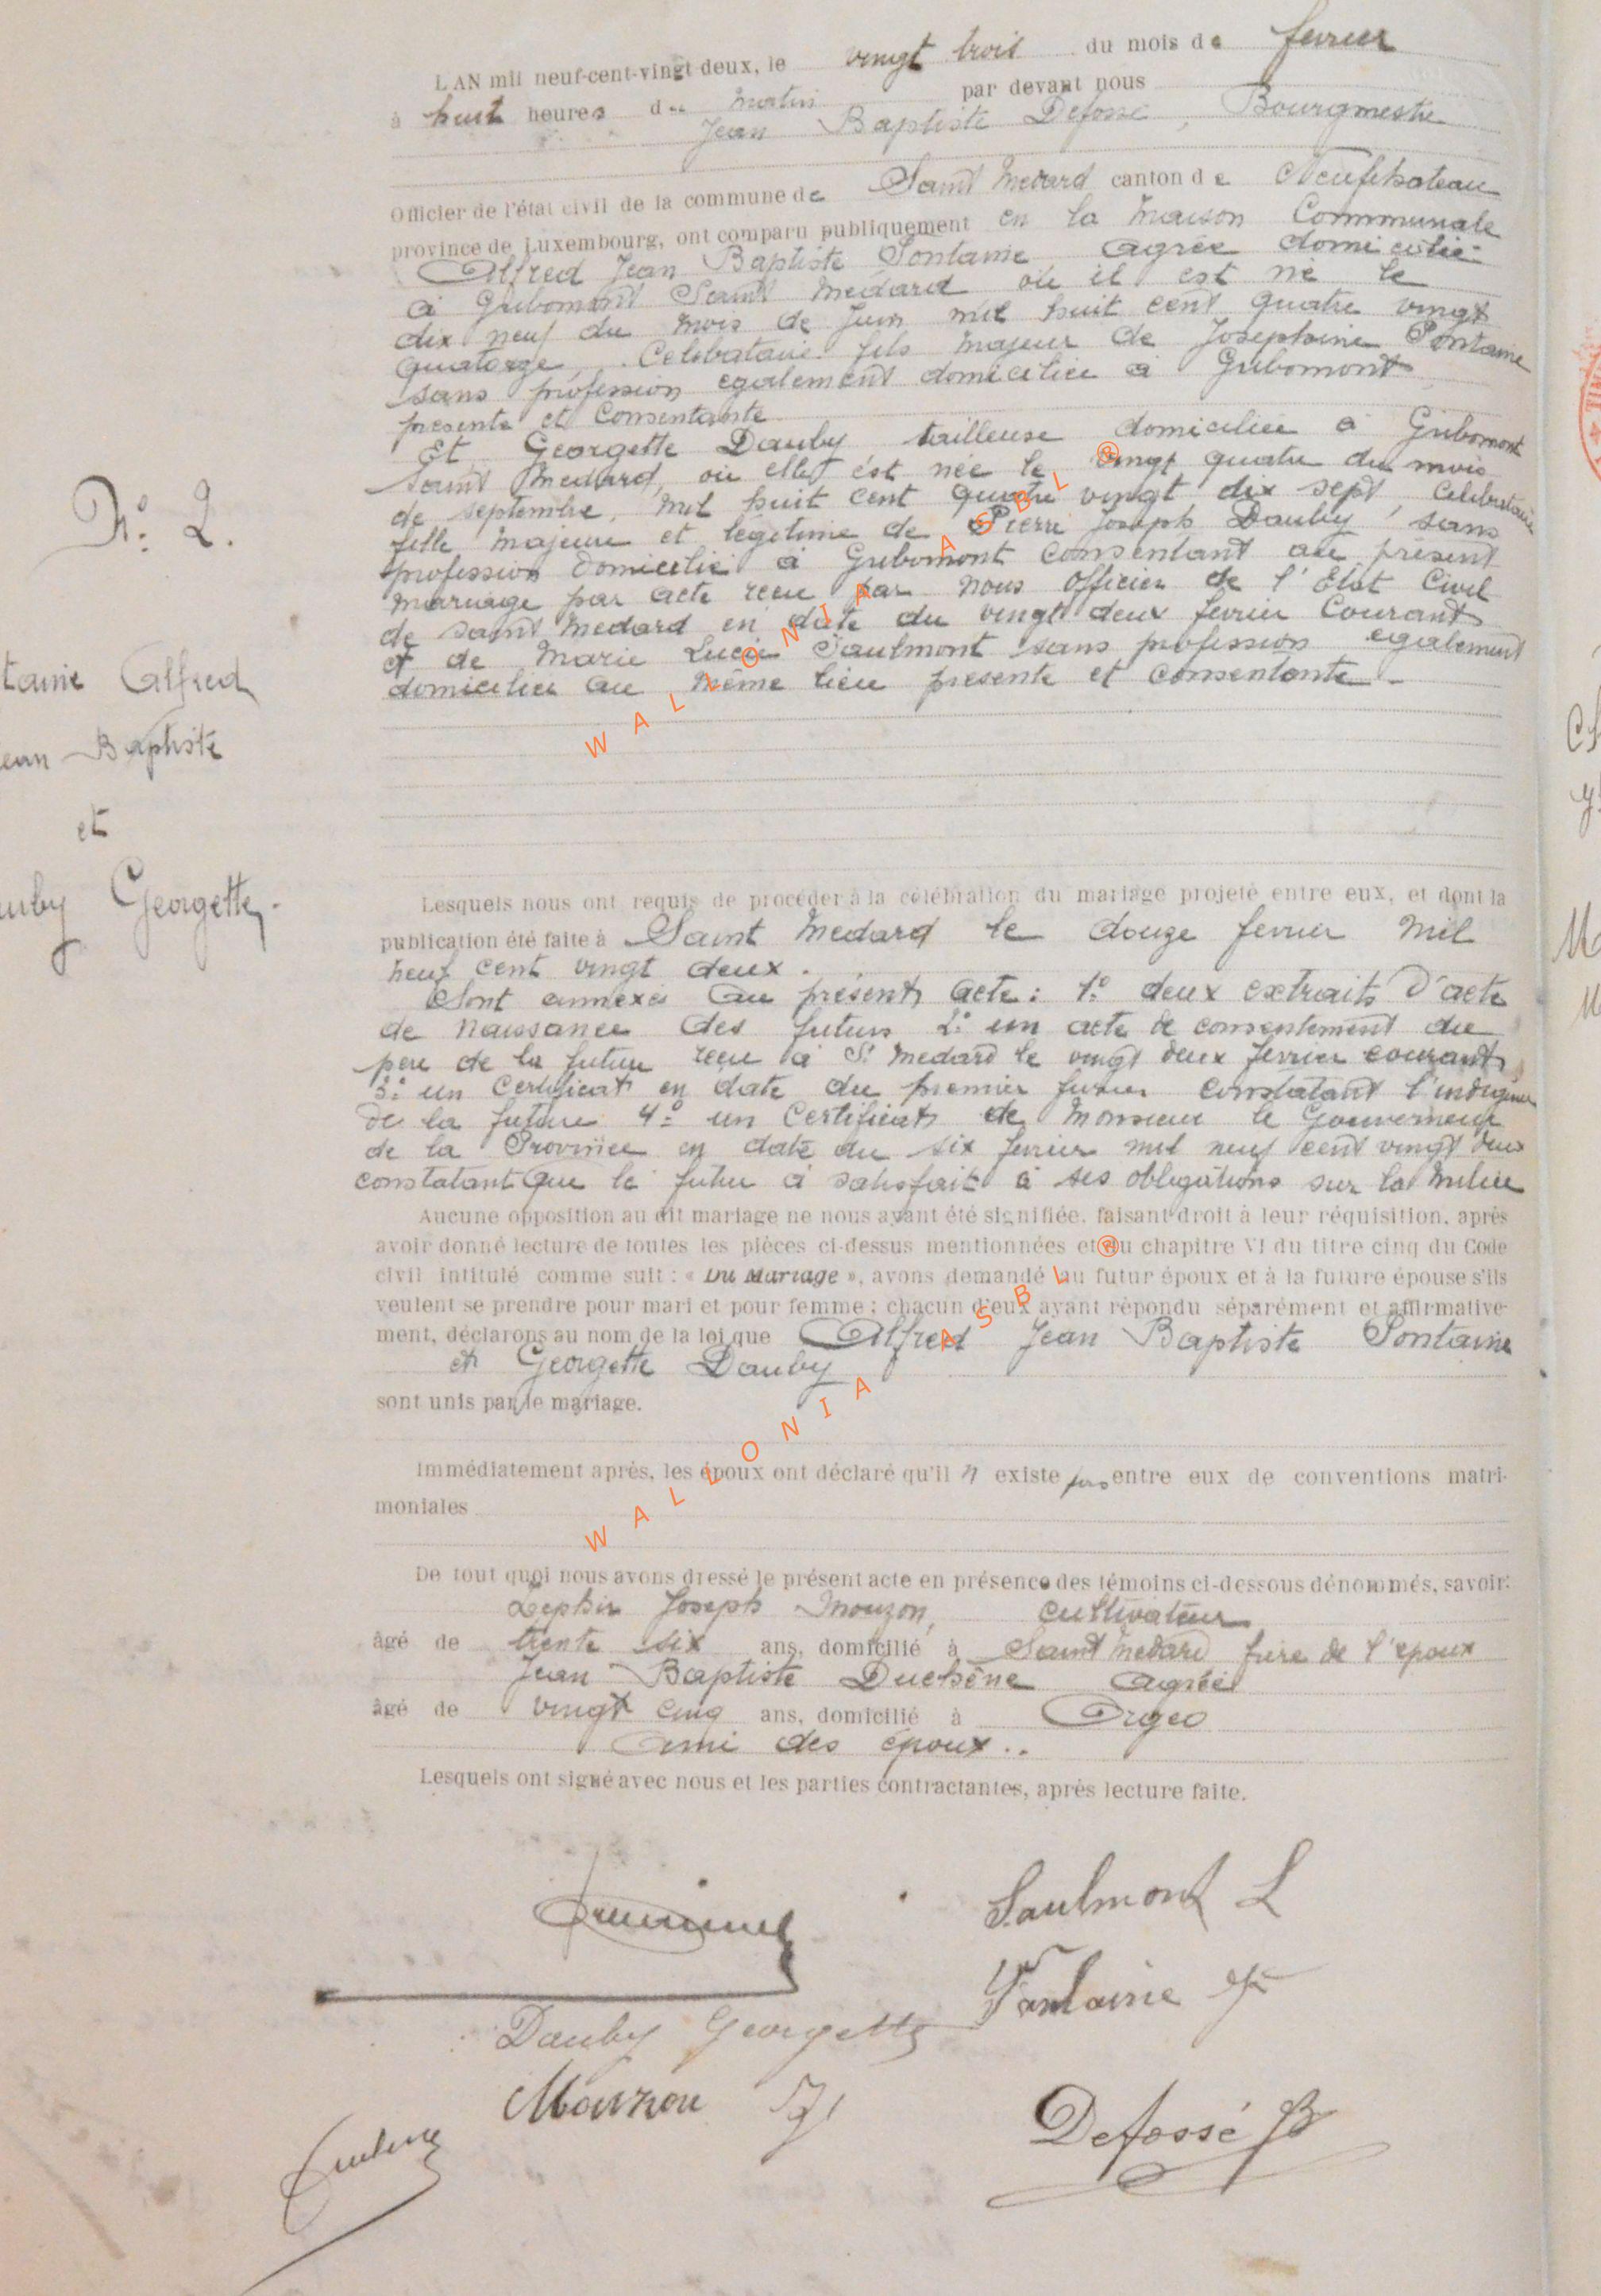 L'AN mil neuf-cent-vingt-deux, le vingt trois du mois de fevrier
à huit heures du matin par devant nous
Jean Baptiste Defossé, Bourgmestre
Officier de l'état civil de la commune de Saint Medard canton de Neufchateau
province de Luxembourg, ont comparu publiquement en la maison Communale
Alfred Jean Baptiste Pontaine agrée domicilié
à Gribomont Saint Médard où il est né le
dix neuf du mois de Juin mil huit cent quatre vingt
quatorze, Celibataire fils majeur de Josephine Pontaine
sans profession egalement domiciliée à Gribomont
presente et Consentante
Et Georgette Dauby tailleuse domiciliée à Gribomont
Saint Medard, où elle est née le vingt quatre du mois
de septembre, mil huit cent quatre vingt dix sept, Celibataire
fille majeure et legitime de Pierre Joseph Dauby, sans
profession domicilié à Gribomont consentant au présent
mariage par acte recu par nous officier de l'Etat Civil
de saint Medard en date du vingt deux fevrier Courant
et de Marie Lucie Saulmont sans profession egalement
domiciliée au même lieu presente et consentante
N.° 2.
taine Alfred
ean Baptiste
et
uby Georgette
Lesquels nous ont requis de procéder à la célébration du mariage projeté entre eux, et dont la
publication été faite à Saint Medard le douze fevrier mil
neuf cent vingt deux.
Sont annexés au présent acte: 1° deux extraits d'acte
de naissance des futurs 2° un acte de consentement du
pere de la future recu à St Medard le vingt deux fevrier courant
3° un Certificat en date du premier fevrier constatant l'indigence
de la future 4° un Certificat de Monsieur le Gouverneur
de la Province en date du six fevrier mil neuf cent vingt deux
constatant que le futur à satisfait à ses obligations sur la milice
Aucune opposition au dit mariage ne nous ayant été signifiée, faisant droit à leur réquisition, après
avoir donné lecture de toutes les pièces ci-dessus mentionnées et du chapitre VI du titre cinq du Code
civil intitulé comme suit : « Du Mariage », avons demandé au futur époux et à la future épouse s'ils
veulent se prendre pour mari et pour femme ; chacun d'eux ayant répondu séparément et affirmative-
ment, déclarons au nom de la loi que Alfred Jean Baptiste Pontaine
et Georgette Dauby
sont unis par le mariage.
Immédiatement après, les époux ont déclaré qu'il n existe pas entre eux de conventions matri-
moniales
De tout quoi nous avons dressé le présent acte en présence des témoins ci-dessous dénommés, savoir:
Zephir Joseph Mouzon, cultivateur
âgé de trente six ans, domicilié à Saint Medard frère de l'epoux
Jean Baptiste Duchêne agréé
âgé de vingt cinq ans, domicilié à Orgeo
ami des époux..
Lesquels ont signé avec nous et les parties contractantes, après lecture faite.
Saulmont L
Dauby Georgette
Mouzon Z J
Defossé JB
WALLONIA ASBL ®
WALLONIA ASBL ®